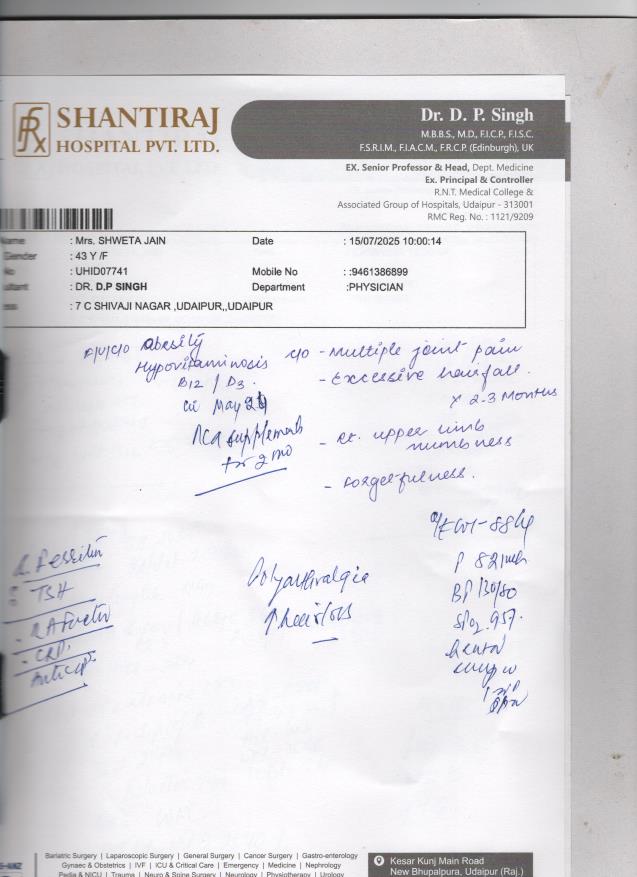 SHANTIRAJ
HOSPITAL PVT. LTD.
Dr. D. P. Singh
M.B.B.S., M.D., F.I.C.P., F.I.S.C.
F.S.R.I.M., F.I.A.C.M., F.R.C.P. (Edinburgh), UK
EX. Senior Professor & Head, Dept. Medicine
Ex. Principal & Controller
R.N.T. Medical College &
Associated Group of Hospitals, Udaipur - 313001
RMC Reg. No. : 1121/9209
Name : Mrs. SHWETA JAIN Date : 15/07/2025 10:00:14
Gender : 43 Y /F
No : UHID07741 Mobile No : :9461386899
ultant : DR. D.P SINGH Department :PHYSICIAN
ess : 7 C SHIVAJI NAGAR ,UDAIPUR,,UDAIPUR
F/U/C/O Obesity
Hypovitaminosis
B12 / D3.
in May
supplements
for 2 mo
c/o - Multiple joint pain
- Excessive hairfall.
x 2-3 Months
- Rt. upper limb
numbness
- Forgetfulness.
O/E Wt - 88kg
P 82/min
BP 130/80
SpO2 95%.
Polyarthralgia
TSH
- RA Factor
- CRP
Anti CCP
Bariatric Surgery | Laparoscopic Surgery | General Surgery | Cancer Surgery | Gastro-enterology
Gynaec & Obstetrics | IVF | ICU & Critical Care | Emergency | Medicine | Nephrology
Pedia & NICU | Trauma | Neuro & Spine Surgery | Neurology | Physiotherapy | Urology
Kesar Kunj Main Road
New Bhupalpura, Udaipur (Raj.)